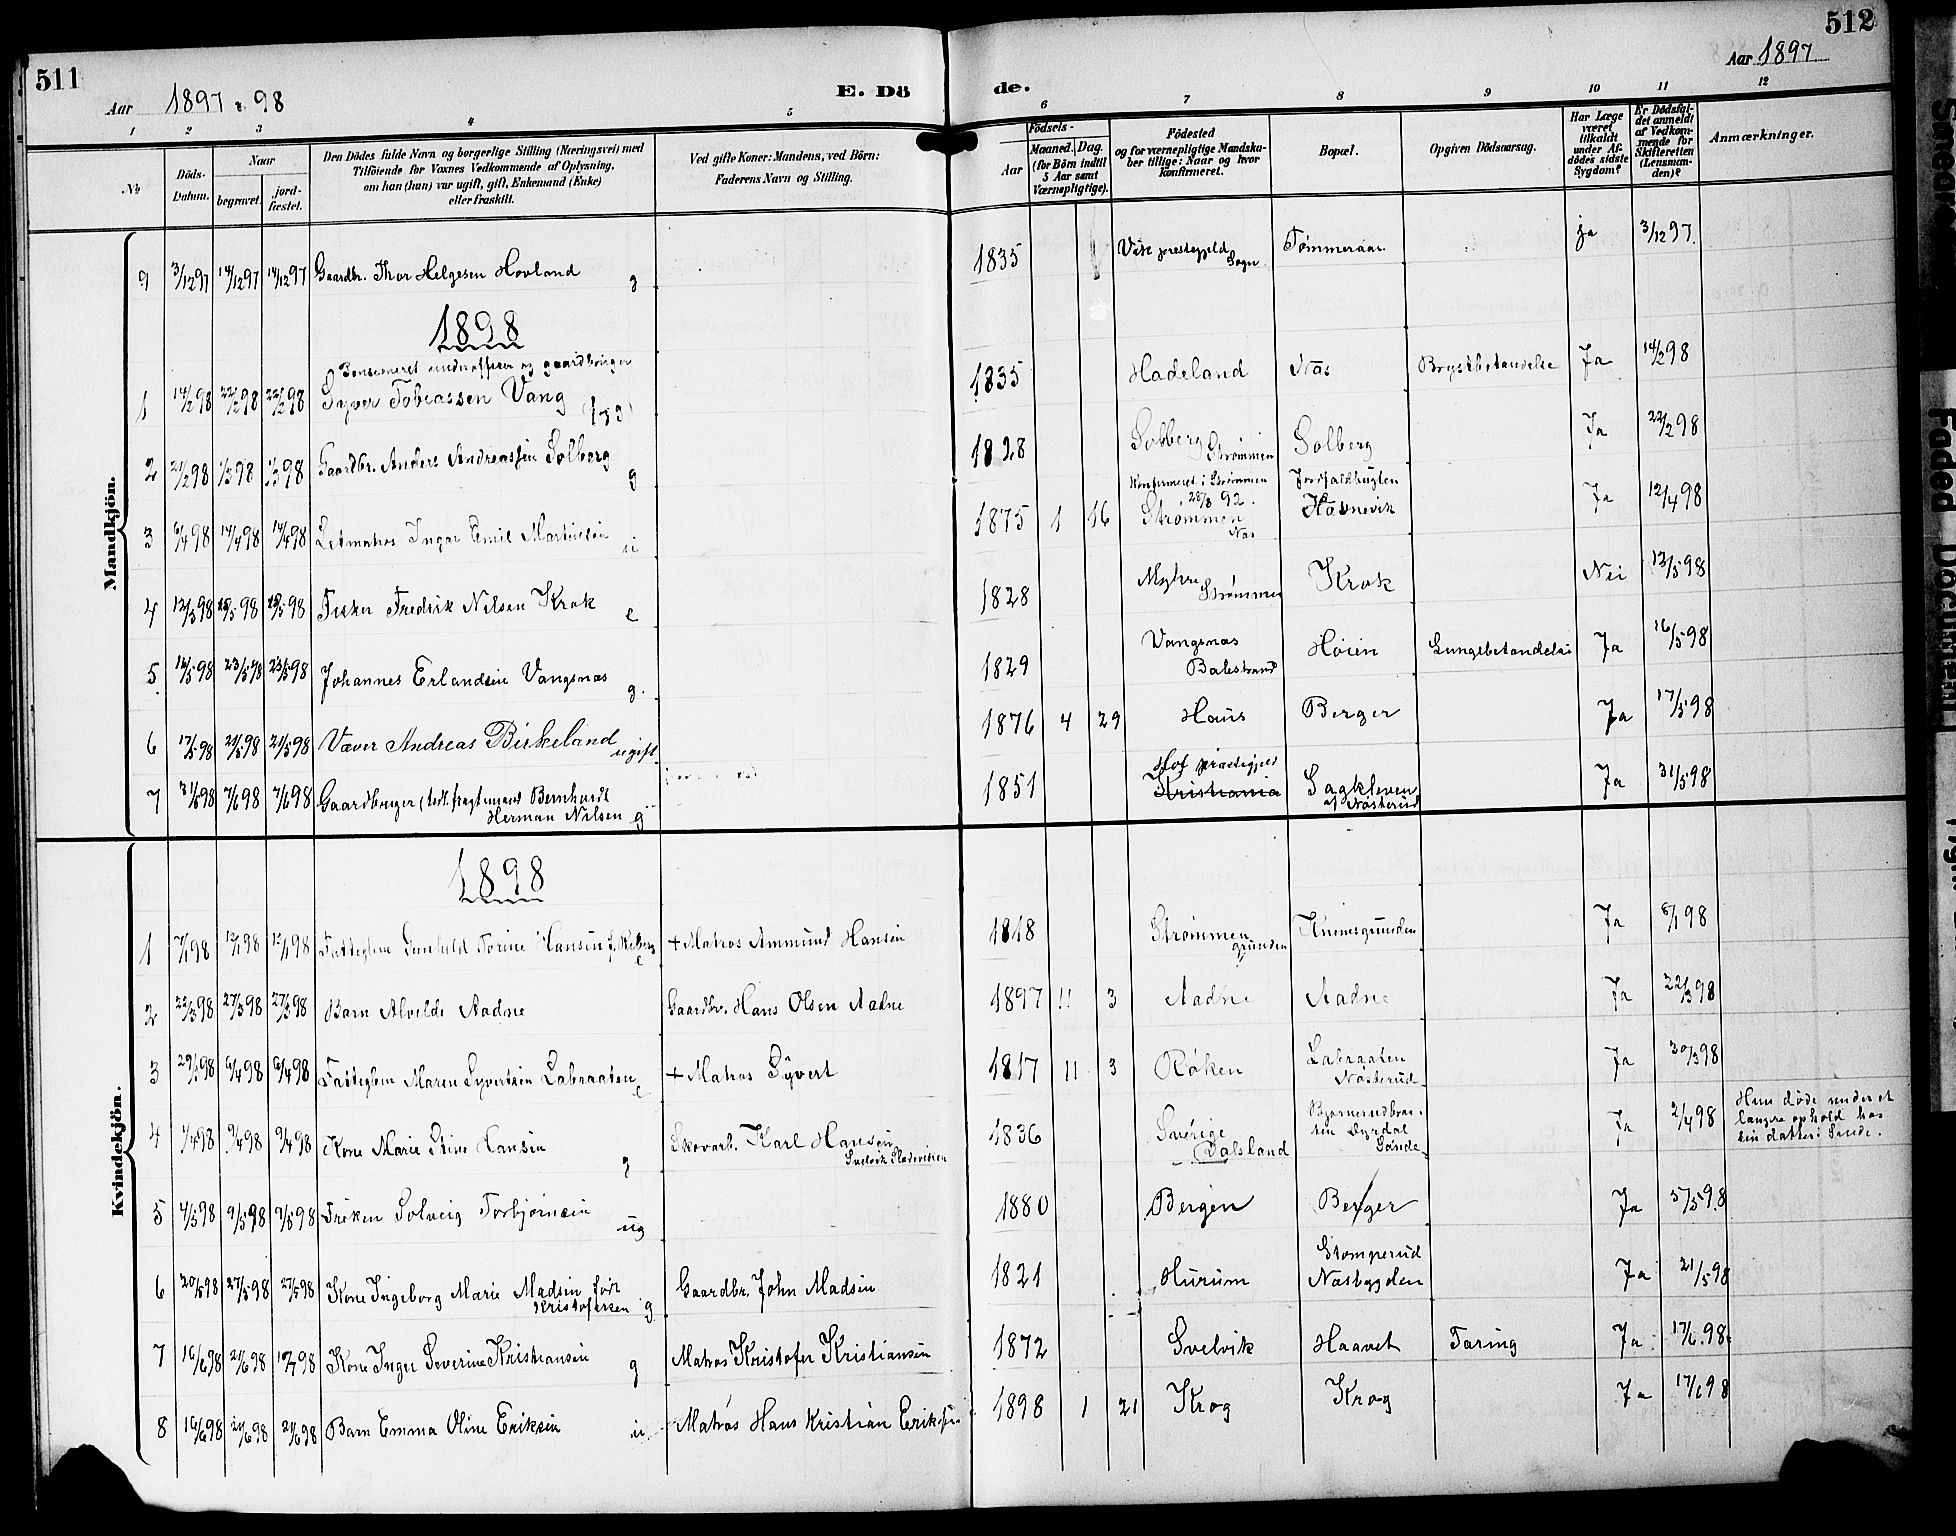 511
Aar 1897 & 98
E. Dö
de.
Aar 1897
512
1 2 3 4 5 6 7 8 9 10 11 12
No
Döds-Datum.
Naar
begravet.
jord-fæstet.
Den Dödes fulde Navn og borgerlige Stilling (Næringsvei) med
Tilföiende for Voxnes Vedkommende af Oplysning,
om han (hun) var ugift, gift, Enkemand (Enke)
eller fraskilt.
Ved gifte Koner: Mandens, ved Börn:
Faderens Navn og Stilling.
Födsels-
Aar
Maaned. Dag.
(for Börn indtil
5 Aar samt
Værnepligtige).
Födested
og for værnepligtige Mandska-
ber tillige: Naar og hvor
konfirmeret.
Bopæl.
Opgiven Dödsaarsag.
Har Læge
været
tilkaldt
under Af-
dödes sidste
Sygdom?
Er Dödsfal-
det anmeldt
af Vedkom-
mende for
Skifteretten
(Lensman-
den)?
Anmærkninger.
Mandkjön.
9 3/12 97 14/12 97 14/12 97 Gaardbr. Thor Helgesen Hovland g 1835 Vik prestegjeld Sogn Tømmeraas ja 3/12 97.
1898
Pensioneret underofficer og gaardbruger
1 14/2 98 22/2 98 22/2 98 Syver Tobiassen Vang 1835 Hadeland Nas Brystbetændelse Ja 14/2 98
2 21/2 98 1/3 98 1/3 98 Gaardbr. Anders Andreassen Solberg g 1828 Solberg Strømmen Solberg Ja 22/2 98
3 6/4 98 14/4 98 14/4 98 Letmatros Ingar Emil Martinsen 1875 1 16 Konfirmeret i Strømmen 28/8 92. Strømmen Nas Jordfaldbugten Havnevik Ja 12/4 98
4 12/5 98 98 98 Fisker Fredrik Nilsen Krok e 1828 Myhre Strømmen Krok Nei 13/5 98
5 14/5 98 23/5 98 23/5 98 Johannes Erlandsen Vangsnas g. 1829 Vangsnas Balestrand Høien Lungebetandelse Ja 16/5 98
6 17/5 98 21/5 98 21/5 98 Væver Andreas Birkeland ugift 1876 4 29 Haus Berger Ja 17/5 98
7 31/5 98 7/6 98 7/6 98 Gaardbruger (tidl. fragtemand Bernhardt Herman Nilsen g 1851 Hof prestegjeld Kristiania Sagkleven af Nøsterud Ja 31/5 98
Kvindekjön.
1898
1 7/1 98 12/1 98 12/1 98 Fattiglem Gunhild Torine Hansen f. e + Matros Ammund Hansen 1818 Strømmen grunden Ja 8/1 98
2 22/3 98 27/3 98 27/3 98 Barn Alvilde Aadne Gaardbr. Hans Olsen Aadne 1897 11 3 Aadne Aadne Ja 22/3 98
3 29/3 98 6/4 98 6/4 98 Fattiglem Maren Syvertsen Labraaten e + Matros Syvert 1817 11 3 Røken Labraaten Nøsterud Ja 30/3 98
4 1/4 98 9/4 98 9/4 98 Kone Marie Stine Hansen g Skovarb. Karl Hansen Svelvik 1836 Sverige Dalsland Sande Ja 2/4 98 Hun døde under et
længre ophold hos
sin datter i Sande.
5 4/5 98 9/5 98 9/5 98 Frøken Solveig Torbjørnsen ug 1880 Bergen Berger Ja 5/5 98
6 20/5 98 27/5 98 27/5 98 Kone Ingeborg Marie Madsen født Kristofersen g Gaardbr. John Madsen 1821 Hurum Stomperud Nasbygden Ja 21/5 98
7 16/6 98 21/6 98 98 Kone Inger Severine Kristiansen g Matros Kristofer Kristiansen 1872 Svelvik Haavet Taring Ja 17/6 98
8 16/6 98 21/6 98 21/6 98 Barn Emma Oline Eriksen Matros Hans Kristian Eriksen 1898 1 21 Krog Krog Ja 17/6 98
Faded Document